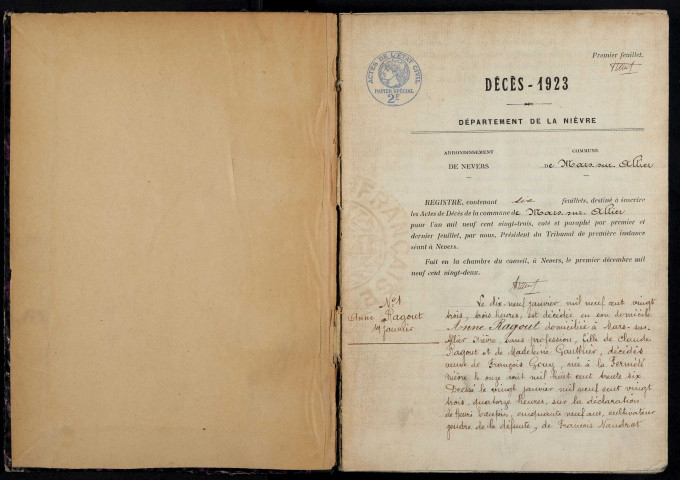 Premier feuillet.
ACTES DE L'ÉTAT CIVIL
PAPIER SPÉCIAL
2F
DÉCÈS - 1923
DÉPARTEMENT DE LA NIÈVRE
ARRONDISSEMENT
DE NEVERS
COMMUNE
de Mars-sur-Allier
REGISTRE, contenant six feuillets, destiné à inscrire
les Actes de Décès de la commune de Mars-sur-Allier
pour l'an mil neuf cent vingt-trois, coté et paraphé par premier et
dernier feuillet, par nous, Président du Tribunal de première instance
séant à Nevers.
Fait en la chambre du conseil, à Nevers, le premier décembre mil
neuf cent vingt-deux.
N° 1
Anne Ragout
19 janvier
Le dix-neuf janvier mil neuf cent vingt
trois, heures, est décédée en son domicile
Anne Ragout domiciliée à Mars-sur-
Allier Nièvre, sans profession, fille de Claude
Ragout et de Madeleine Gauthier, décédés
veuve de François Gouy, née à la Fermeté
Nièvre le onze août mil huit cent trente six
Dressé le vingt janvier mil neuf cent vingt
trois, quatorze heures, sur la déclaration
de Henri cinquante neuf ans, cultivateur
gendre de la défunte, de François Naudrot